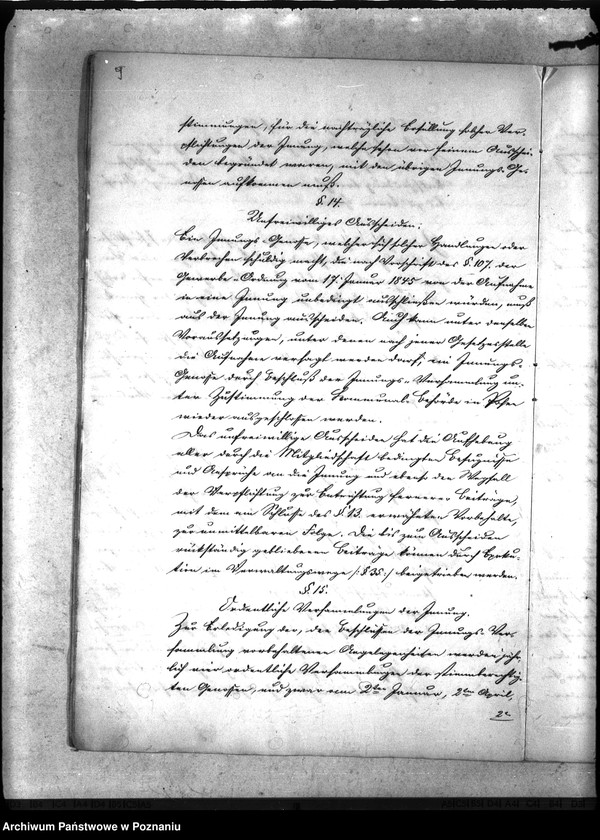 9
stimmungen, für die nachträgliche Erfüllung solcher Ver-
pflichtungen der Innung, welche schon vor seinem Ausschei-
den begründet waren, mit den übrigen Innungs-Ge-
nossen aufkommen muß.
§. 14.
Unfreiwilliges Ausscheiden.
Ein Innungs-Genosse, welcher sich solcher Handlungen oder
Verbrechen schuldig macht, die nach Vorschrift des §. 107. der
Gewerbe-Ordnung vom 17. Januar 1845 von der Aufnahme
in eine Innung unbedingt ausschließen würden, muß
aus der Innung ausscheiden. Auch kann unter denselben
Voraussetzungen, unter denen nach jener Gesetzesstelle
die Aufnahme versagt werden darf, ein Innungs-
Genosse durch Beschluß der Innungs-Versammlung un-
ter Zustimmung der Kommunal-Behörde in Posen
wieder ausgeschlossen werden.
Das unfreiwillige Ausscheiden hat die Aufhebung
aller durch die Mitgliedschaft bedingten Befugnisse
und Ansprüche an die Innung und ebenso den Wegfall
der Verpflichtung zur Entrichtung fernerer Beiträge,
mit dem am Schlusse des §. 13. erwähnten Vorbehalte,
zur unmittelbaren Folge. Die bis zum Ausscheiden
rückständig gebliebenen Beiträge können durch Exeku-
tion im Verwaltungswege /: § 35 :/ beigetrieben werden.
§. 15.
Ordentliche Versammlungen der Innung.
Zur Erledigung der, den Beschlüssen der Innungs-Ver-
sammlung vorbehaltenen Angelegenheiten werden jähr-
lich vier ordentliche Versammlungen der stimmberechtig-
ten Genossen, und zwar am 2ten Januar, 2ten April,
2n
Archiwum Państwowe w Poznaniu